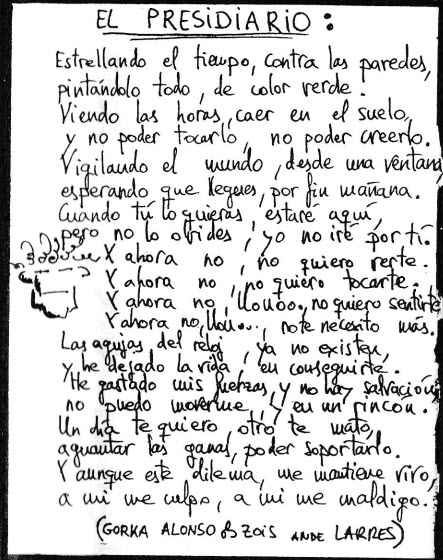 EL PRESIDIARIO:
Estrellando el tiempo, contra las paredes,
pintándolo todo, de color verde.
Viendo las horas, caer en el suelo,
y no poder tocarlo, no poder creerlo.
Vigilando el mundo, desde una ventana
esperando que llegues, por fin mañana.
Cuando tú lo quieras, estaré aquí,
pero no lo olvides, yo no iré por tí.
Y ahora no, no quiero verte.
Y ahora no, no quiero tocarte.
Y ahora no, no quiero sentirte
Y ahora no, note necesito más.
Las agujas del reloj, ya no existen,
y he dejado la vida, en conseguirte.
He gastado mis fuerzas, y no hay salvación
no puedo moverme, y en un rincon.
Un día te quiero, otro te mato,
aguantar las ganas, poder soportarlo.
Y aunque este dilema, me mantiene vivo,
a mi me culpo, a mi me maldigo.
(GORKA ALONSO ZOIS ANDE LARRES)